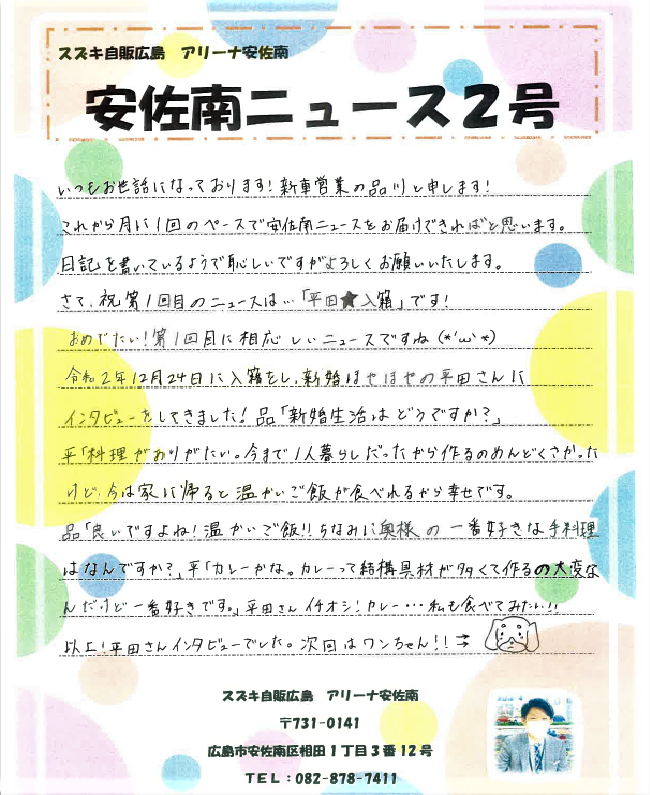 スズキ自販広島 アリーナ安佐南
安佐南ニュース2号
いつもお世話になっております!新車営業の品川と申します!
これから月に1回のペースで安佐南ニュースをお届けできればと思います。
日記を書いているようで恥しいですがよろしくお願いいたします。
さて、祝第1回目のニュースは…「平田★入籍」です!
おめでたい!第1回目に相応しいニュースですね(*'ω'*)
令和2年12月24日に入籍をし、新婚ほやほやの平田さんに
インタビューをしてきました!品「新婚生活はどうですか?」
平「料理がありがたい。今まで1人暮らしだったから作るのめんどくさかった
けど、今は家に帰ると温かいご飯が食べれるから幸せです。
品「良いですよね!温かいご飯!!ちなみに奥様の一番好きな手料理
はなんですか?」平「カレーかな。カレーって結構具材が多くて作るの大変な
んだけど一番好きです。」平田さんイチオシ!カレー…私も食べてみたい!!
以上!平田さんインタビューでした。次回はワンちゃん!!→
スズキ自販広島 アリーナ安佐南
〒731-0141
広島市安佐南区相田1丁目3番12号
TEL:082-878-7411